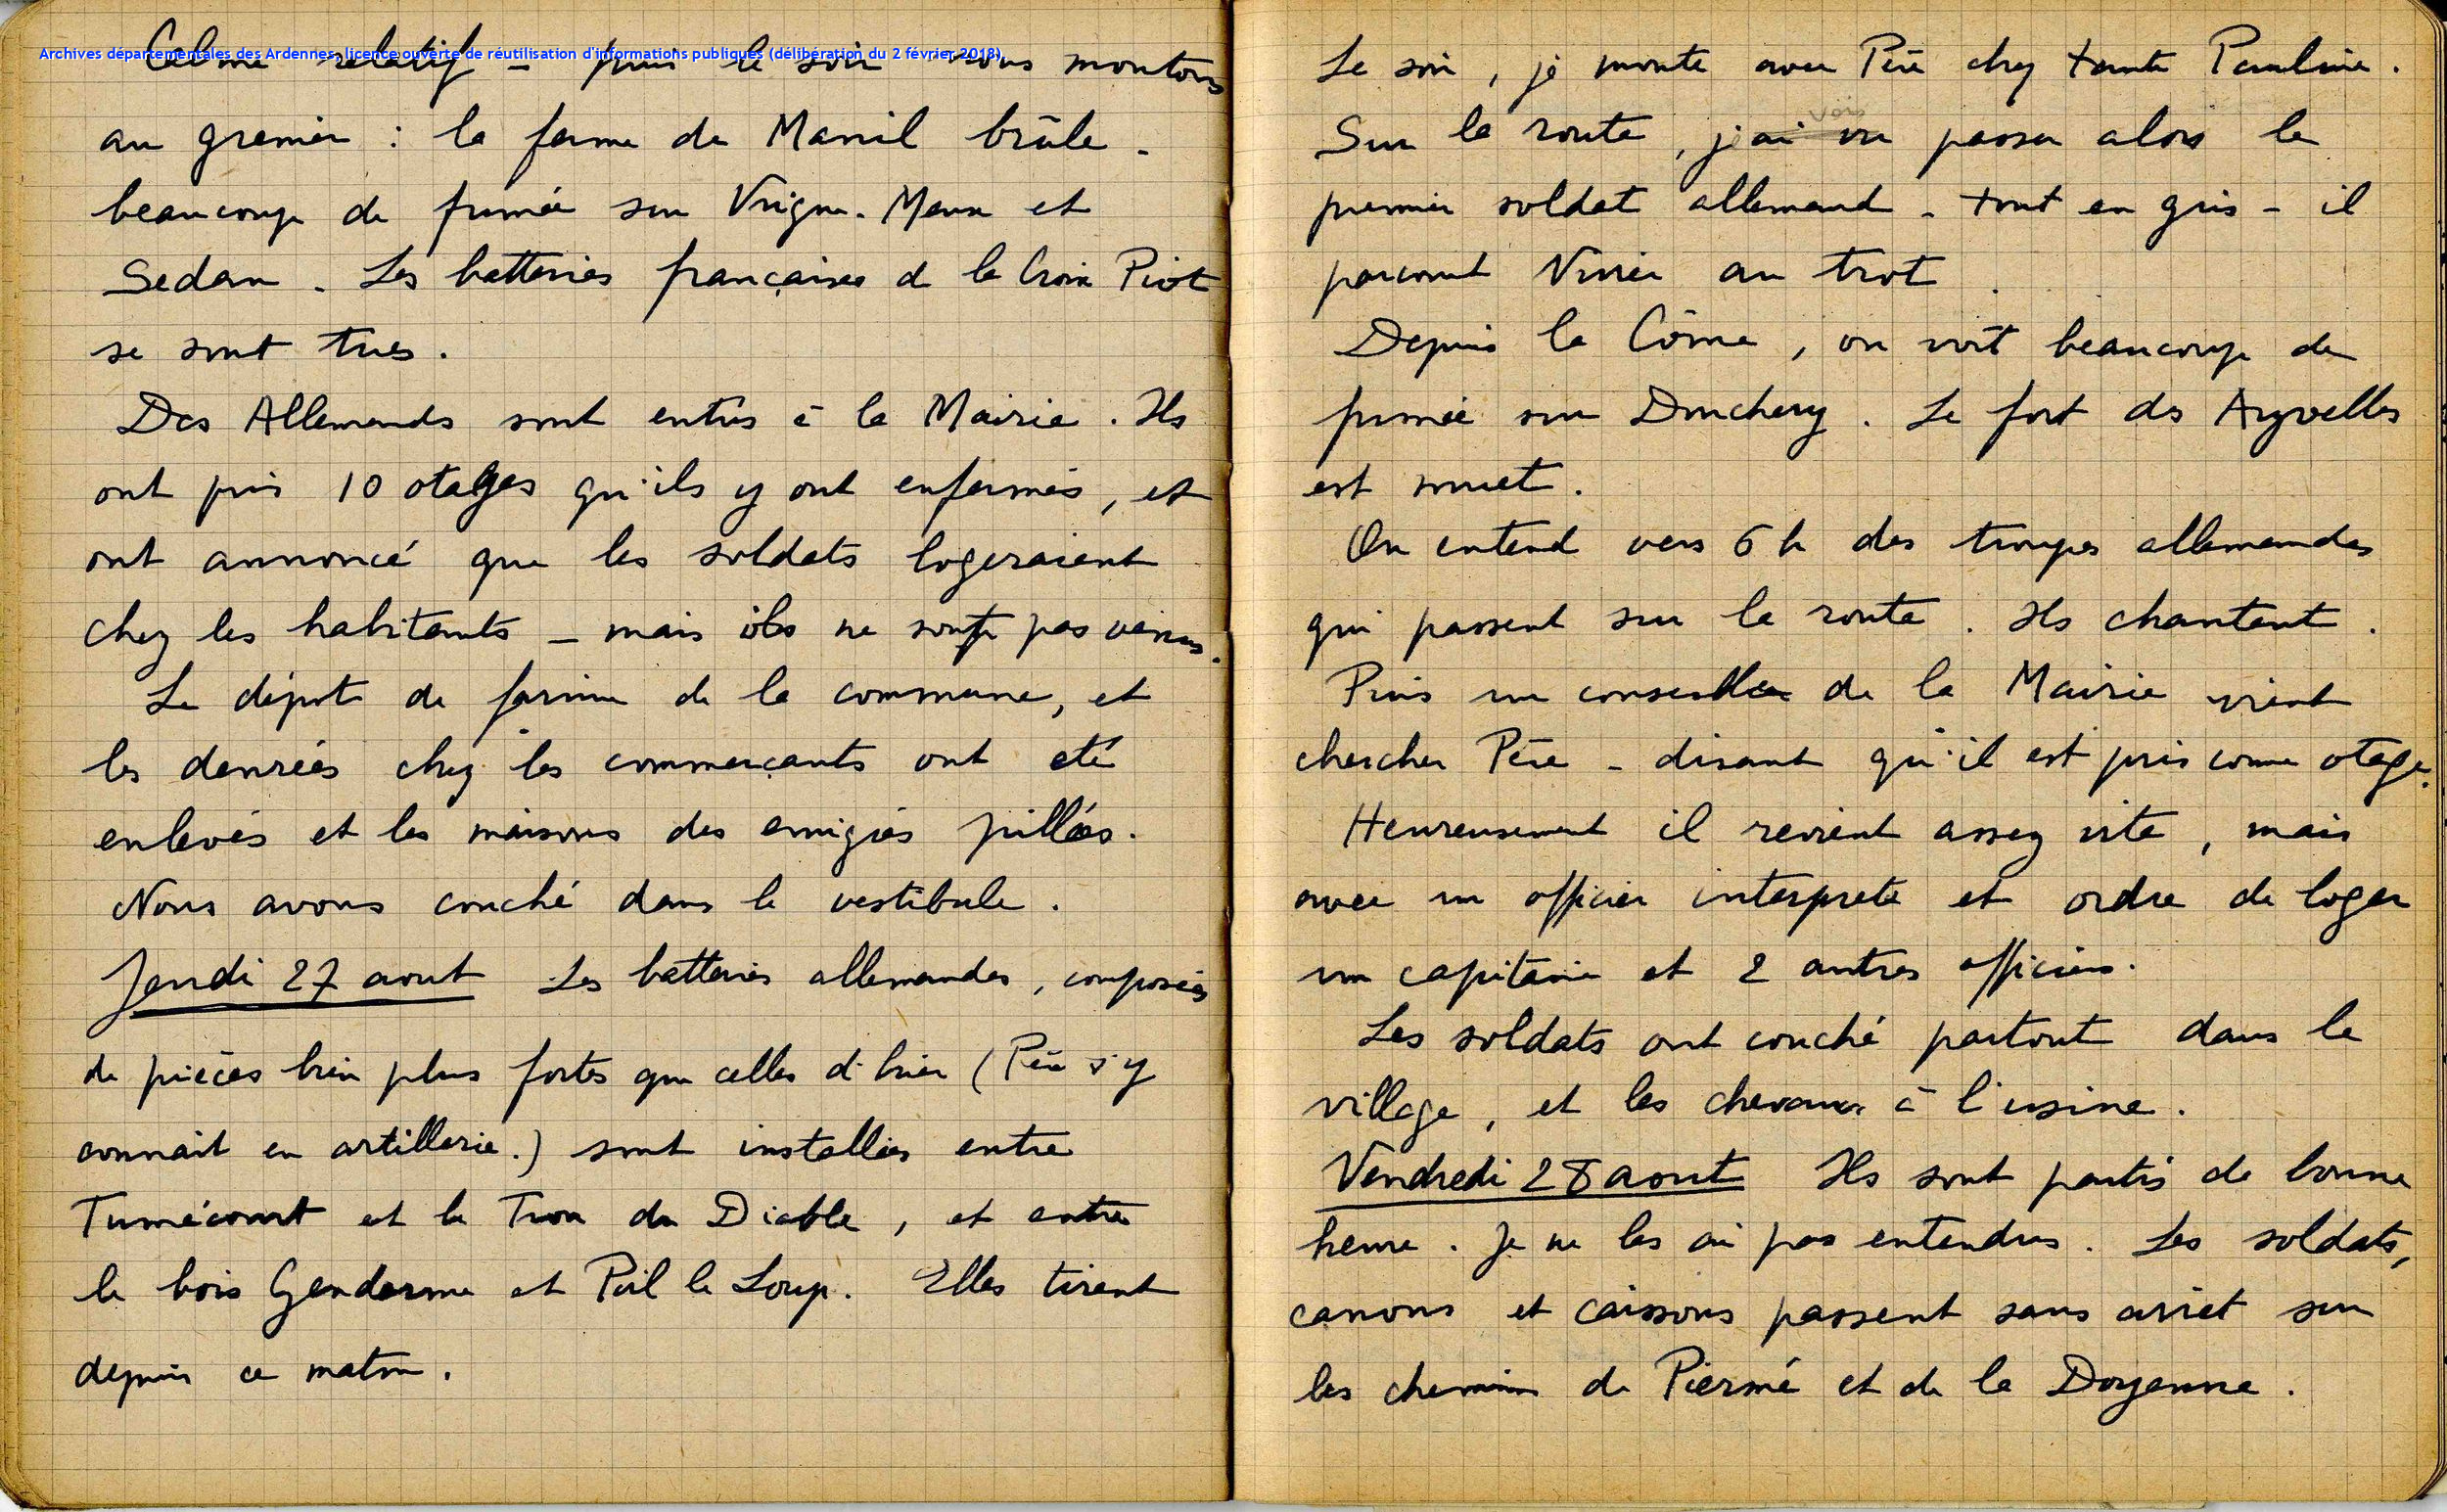 Archives départementales des Ardennes, licence ouverte de réutilisation d'informations publiques (délibération du 2 février 2018).
Calme relatif – puis le soir nous montons
au grenier : la ferme de Manil brûle.
beaucoup de fumée sur Vrigne-Meuse et
Sedan. Les batteries françaises d la Croix Piot
se sont tues.
Des Allemands sont entrés à la Mairie. Ils
ont pris 10 otages qu'ils y ont enfermés, et
ont annoncé que les soldats logeraient
chez les habitants – mais ils ne sont pas venus.
Le dépot de farine de la commune, et
les denrées chez les commerçants ont été
enlevés et les maisons des emigrés pillées.
Nous avons couché dans le vestibule.
Jeudi 27 aout Les batteries allemandes, composées
de pièces bien plus fortes que celles d'hier (Père s'y
connait en artillerie.) sont installées entre
Tumécourt et le Trou du Diable, et entre
le bois Gendarme et Poil le Loup. Elles tirent
depuis ce matin.
Le soir, je monte avec Père chez tante Pauline.
vois
Sur la route, j'ai vu passer alors le
premier soldat allemand – tout en gris – il
parcourt Vivier au trot.
Depuis la Côme, on voit beaucoup de
fumée sur Donchery. Le fort des Ayvelles
est muet.
On entend vers 6 h des troupes allemandes
qui passent sur la route. Ils chantent.
Puis un conseiller de la Mairie vient
chercher Père – disant qu'il est pris comme otage.
Heureusement il revient assez vite, mais
avec un officier interprete et ordre de loger
un capitaine et 2 autres officiers.
Les soldats ont couché partout dans le
village, et les chevaux à l'usine.
Vendredi 28 aout Ils sont partis de bonne
heure. Je ne les ai pas entendus. Les soldats,
canons et caissons passent sans arrêt sur
les chemins de Piermé et de la Doyenne.